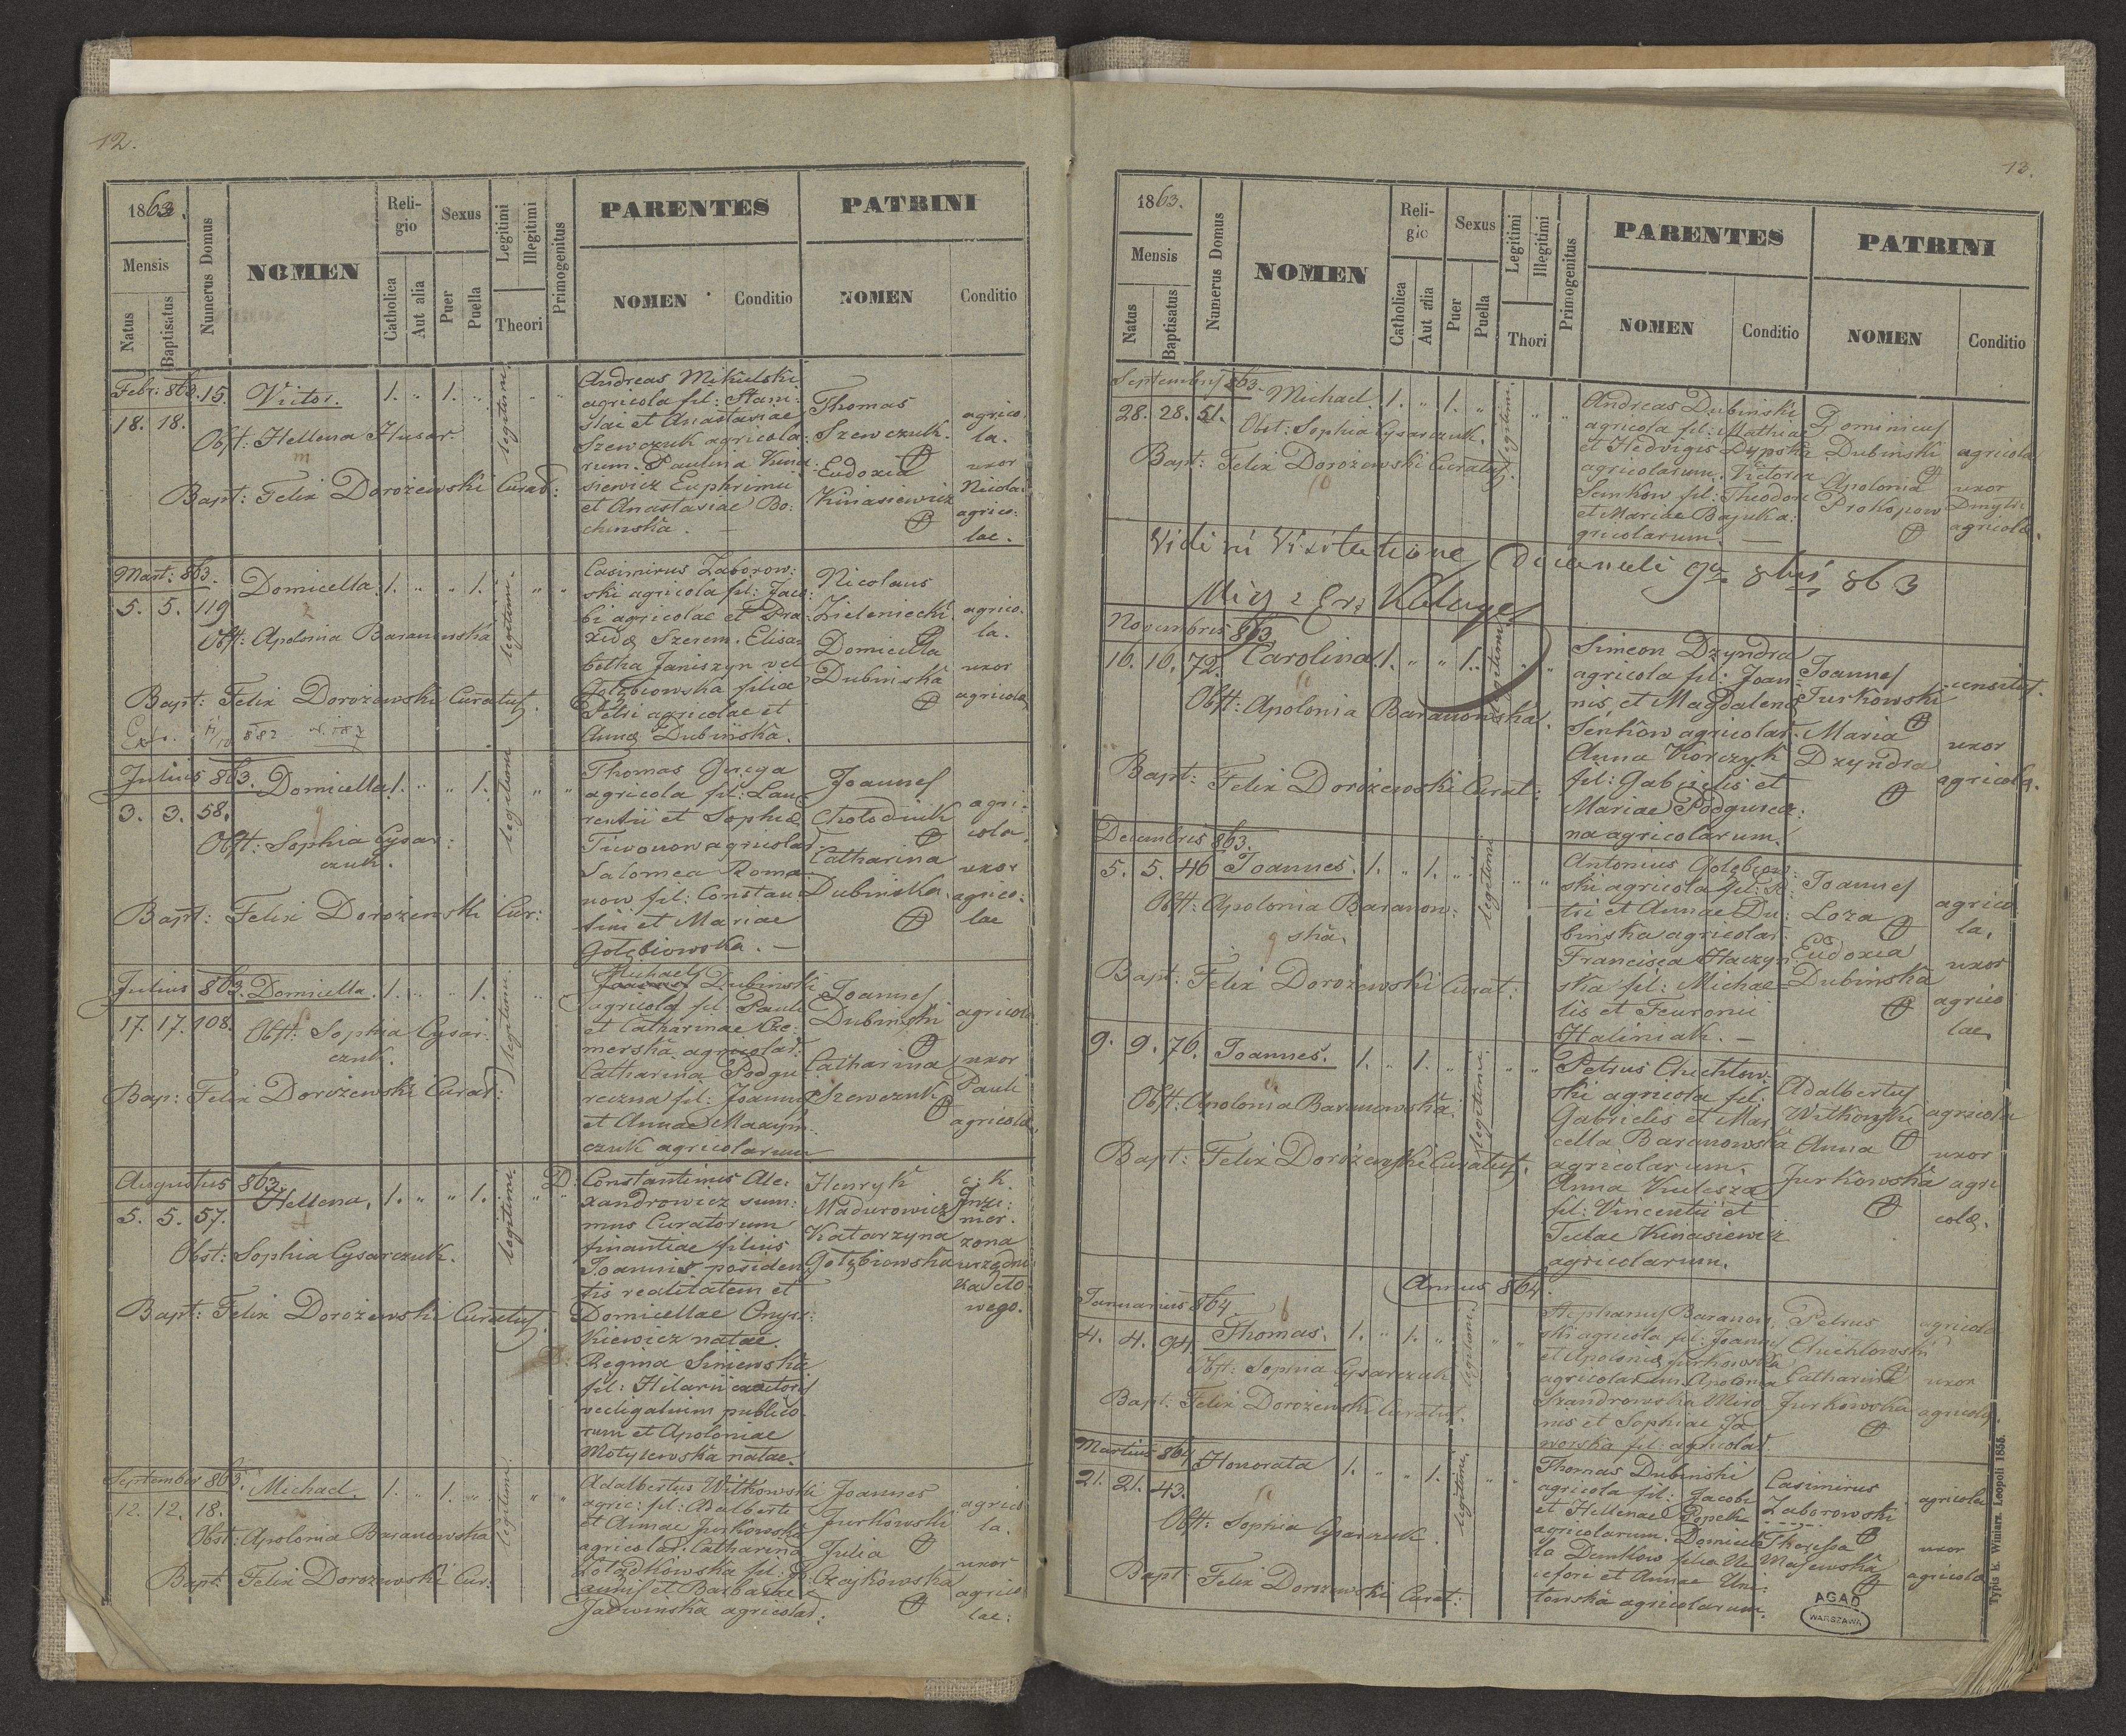 12.
1863.
Mensis
Natus
Baptisatus
Numerus Domus
NOMEN
Reli-
gio
Catholica
Aut alia
Sexus
Puer
Puella
Legitimi
Illegitimi
Theori
Primogenitus
PARENTES
NOMEN
Conditio
PATRINI
NOMEN
Conditio
Febr: 863. 15. Victor. 1. " 1. " legitimi " "
18. 18.
Obst: Hellena Husar.
Bapt: Felix Dorożewski Curat:
Andreas Mikulski
agricola fil: Stani:
slai et Anastasiae
Szewczuk agricola:
rum. Paulina Kina:
siewicz Euphrimii
et Anastasiae Bo:
chenska. —
Thomas
Szewczuk.
Eudoxia
Kinasiewicz
agrico:
la.
uxor
Nicolai
agrico:
lae.
Mart: 863.
5. 5. 119 Domicella. 1. " " 1. legitimi. " "
Obst: Apolonia Baranowska
Bapt: Felix Dorożewski Curatus.
Casimirus Zaborow:
ski agricola fil: Jaco:
bi agricolae et Pra
xidae Szerem. Elisa
betha Janiszyn vel
Gołębiowska filia
Petri agricolae et
Annae Dubińska.
Nicolaus
Zieleniecki
Domicella
Dubinska
agrico:
la.
uxor
agricolae
Julius 863. Domicella 1. " " 1. legitimi " "
3. 3. 58.
Obst: Sophia Cysar:
czuk.
Bapt: Felix Dorożewski Cur:
Thomas
agricola fil: Lau
rentii et Sophiae
agricolar.
Salomea Roma
now fil: Constan
tini et Mariae
Gołębiowska. —
Joannes
Chołodniuk
Catharina
Dubinska.
agri:
cola
uxor
agrico:
lae
Julius 863. Domicella. 1. " " 1. legitimi. "
17. 17. 108. Obst: Sophia Cysar:
czuk.
Bap: Felix Dorożewski Curat:
Michael
Dubinski
agricola fil: Pauli
et Catharinae Cze:
merska agricolar:
Catharina Podgu
reczna fil: Joannis
et Annae
czuk agricolarum
Joannes
Dubinski
Catharina
Szewczuk
agricola
uxor
Pauli
agricolae.
Augustus 863.
5. 5. 57. Hellena. 1. " " 1. legitimi. " "
Obst: Sophia Cysarczuk.
Bapt: Felix Dorożewski Curatus.
D: Constantinus Ale:
xandrowicz sum:
mus Curatorum
finantiae filius
Joannis posiden
tis realitatem et
Domicellae Onysz:
kiewicz natae.
D: Regina Siniewska
fil: Hilarii exactoris
vectigalium publico:
rum et Apoloniae
Motylewska natae.
Henryk
Madurowicz
Katarzyna
Gołębiowska
c: k.
Inzi:
nier.
zona
urzędni
ka
wego.
September 863. Michael. 1. " 1. " legitimi. " "
12. 12. 18.
Obst: Apolonia Baranowska
Bapt: Felix Dorożewski Cur:
Adalbertus Witkowski
agric: fil: Adalberti
et Annae Jurkowska
agricolar. Catharina
fil: Jo
annis et Barbarae
Jadwinska agricolar:
Joannes
Jurkowski
Julia
Czajkowska
agrico
la.
uxor
agrico
lae:
13.
1863.
Mensis
Natus
Baptisatus
Numerus Domus
NOMEN
Reli-
gio
Catholica
Aut alia
Sexus
Puer
Puella
Legitimi
Illegitimi
Thori
Primogenitus
PARENTES
NOMEN
Conditio
PATRINI
NOMEN
Conditio
Septembris 863. Michael 1. " 1. " legitimi. " "
28. 28. 51. Obst: Sophia Cysarczuk.
Bapt: Felix Dorożewski Curatus.
Andreas Dubinski
agricola fil: Mathiae
et Hedvigis Dypska
agricolarum. Victoria
Senkow fil: Theodori
et Mariae Bajuk a:
gricolarum. —
Dominicus
Dubinski
Apolonia
Prokopow
agricola
uxor
Dmytri
agricolae.
Vidi in Visitatione Decanali 9a 8bris 863
Novembris 863.
16. 16. 72. Carolina. 1. " " 1. legitimi. " "
Obst: Apolonia Baranowska.
Bapt: Felix Dorożewski Curat:
Simeon Dzyndra
agricola fil: Joan:
nis et Magdalenae
Senkow agricolar.
Anna Korczyk
fil: Gabrielis et
Mariae Podgurecz:
na agricolarum.
Joannes
Jurkowski
Maria
Dzyndra
uxor
agricolae.
Decembris 863.
5. 5. 46 Joannes. 1. " 1. " legitimi " "
Obst: Apolonia Baranow:
ska.
Bapt: Felix Dorożewski Curat:
Antonius Gołębiow:
ski agricola fil: Pe
tri et Annae Du:
binska agricolar:
Francisca Haczyn
ska fil: Michae
lis et Feuronii
Haliniak. —
Joannes
Loza
Eudoxia
Dubinska
agrico
la.
uxor
agrico
lae.
9. 9. 76. Joannes. 1. " 1. " legitimi. " "
Obst: Apolonia Baranowska.
Bapt: Felix Dorożewski Curatus.
Petrus Chichłow:
ski agricola fil:
Gabrielis et Mar
cella Baranowska
agricolarum.
Anna Kulesza
fil: Vincentii et
Teclae Kinasiewicz
agricolarum.
Adalbertus
Witkowski
Anna
Jurkowska
agricola
uxor
agri
colae.
Annus 864.
Januarius 864.
4. 4. 94. Thomas. 1. " 1. " legitimi. " "
Obst: Sophia Cysarczuk
Bapt: Felix Dorożewski Curatus.
Stephanus Baranow:
ski agricola fil: Joannis
et Apoloniae Jurkowska
agricolarum. Apolonia
Szandrowska Miro
nis et Sophiae Ja
worska fil: agricolar.
Petrus
Chichłowski
Catharina
Jurkowska
agricola
uxor
agricolae.
Martius 864 Honorata 1. " " 1. legitimi. " "
21. 21. 43.
Obst: Sophia Cysarczuk.
Bapt: Felix Dorożewski Curat:
Thomas Dubinski
agricola fil: Jacobi
et Hellenae Popek
agricolarum. Domicel
la Demkow filia Ni
cefori et Annae Uni:
towska agricolarum.
Casimirus
Zaborowski
Theressa
Majewska
agricola
uxor
agricolae
Typis E. Winiarz. Leopoli 1855.
AGAD
WARSZAWA